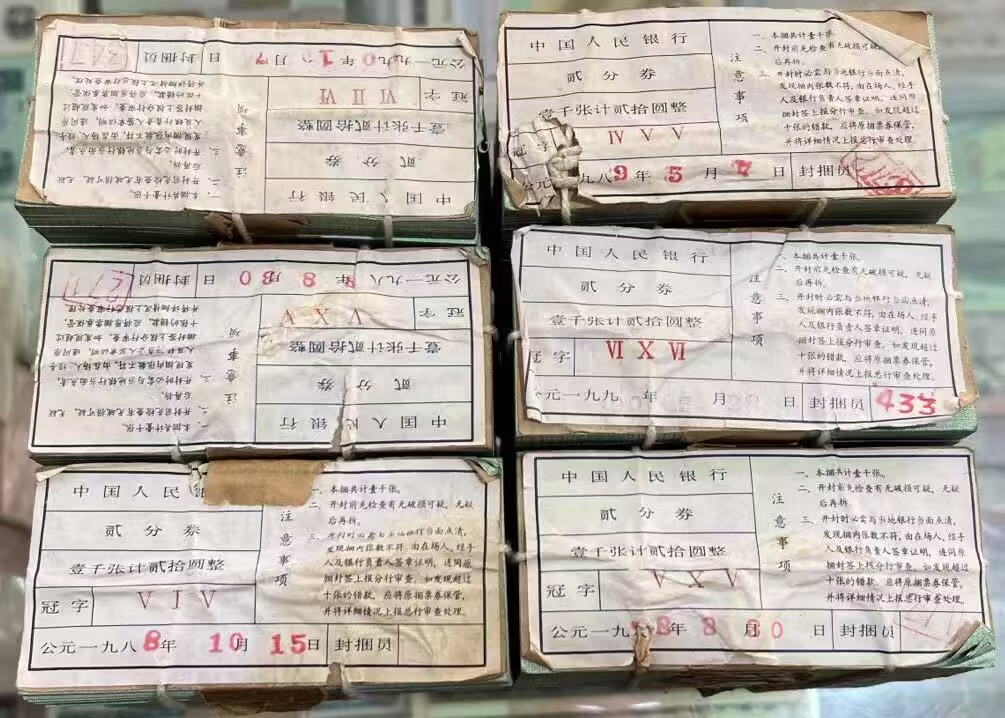 中国人民银行
贰分券
壹千张计贰拾圆整
冠字 Ⅵ Ⅱ Ⅵ
公元一九九0年 月7日 封捆员 347
注意事项
一、本捆共计壹千张。
二、开封前先检查有无破损可疑，无疑
后再拆。
三、开封时必需与当地银行当面点清，
发现捆内张数不符，由在场人、经手
人及银行负责人签章证明，连同原
捆封签上报分行审查，如发现超过
十张的错款，应将原捆票券保管，
并将详细情况上报总行审查处理。
中国人民银行
贰分券
壹千张计贰拾圆整
冠字 Ⅳ Ⅴ Ⅴ
公元一九八9年5月 日 封捆员
注意事项
一、本捆共计壹千张。
二、开封前先检查有无破损可疑，
后再拆。
三、开封时必需与当地银行当面点清，
发现捆内张数不符，由在场人、经手
人及银行负责人签章证明，连同原
捆封签上报分行审查，如发现超过
十张的错款，应将原捆票券保管，
并将详细情况上报总行审查处理。
中国人民银行
贰分券
壹千张计贰拾圆整
冠字 Ⅴ Ⅹ Ⅴ
公元一九八8年8月30日 封捆员
注意事项
一、本捆共计壹千张。
二、开封前先检查有无破损可疑，无疑
后再拆。
三、开封时必需与当地银行当面点清，
发现捆内张数不符，由在场人、经手
人及银行负责人签章证明，连同原
捆封签上报分行审查，如发现超过
十张的错款，应将原捆票券保管，
并将详细情况上报总行审查处理。
中国人民银行
贰分券
壹千张计贰拾圆整
冠字 Ⅵ Ⅹ Ⅵ
元一九九 年 月 日 封捆员 433
注意事项
一、本捆共计壹千张。
二、开封前先检查有无破损可疑，无疑
后再拆。
三、开封时必需与当地银行当面点清，
发现捆内张数不符，由在场人、经手
人及银行负责人签章证明，连同原
捆封签上报分行审查，如发现超过
十张的错款，应将原捆票券保管，
并将详细情况上报总行审查处理。
中国人民
贰分券
壹千张计贰拾圆整
冠字 Ⅴ Ⅰ Ⅴ
公元一九八8年10月15日 封捆员
注意事项
一、本捆共计壹千张。
二、开封前先检查有无破损可疑，无疑
后再拆。
三、开封时必需与当地银行当面点清，
发现捆内张数不符，由在场人、经手
人及银行负责人签章证明，连同原
捆封签上报分行审查，如发现超过
十张的错款，应将原捆票券保管，
并将详细情况上报总行审查处理。
中国人民银行
贰分券
壹千张计贰拾圆整
冠字 Ⅴ Ⅹ Ⅴ
公元一九八8年8月30日 封捆员
注意事项
一、本捆共计壹千张。
二、开封前先检查有无破损可疑，无疑
后再拆。
三、开封时必需与当地银行当面点清，
发现捆内张数不符，由在场人、经手
人及银行负责人签章证明，连同原
捆封签上报分行审查，如发现超过
十张的错款，应将原捆票券保管，
并将详细情况上报总行审查处理。